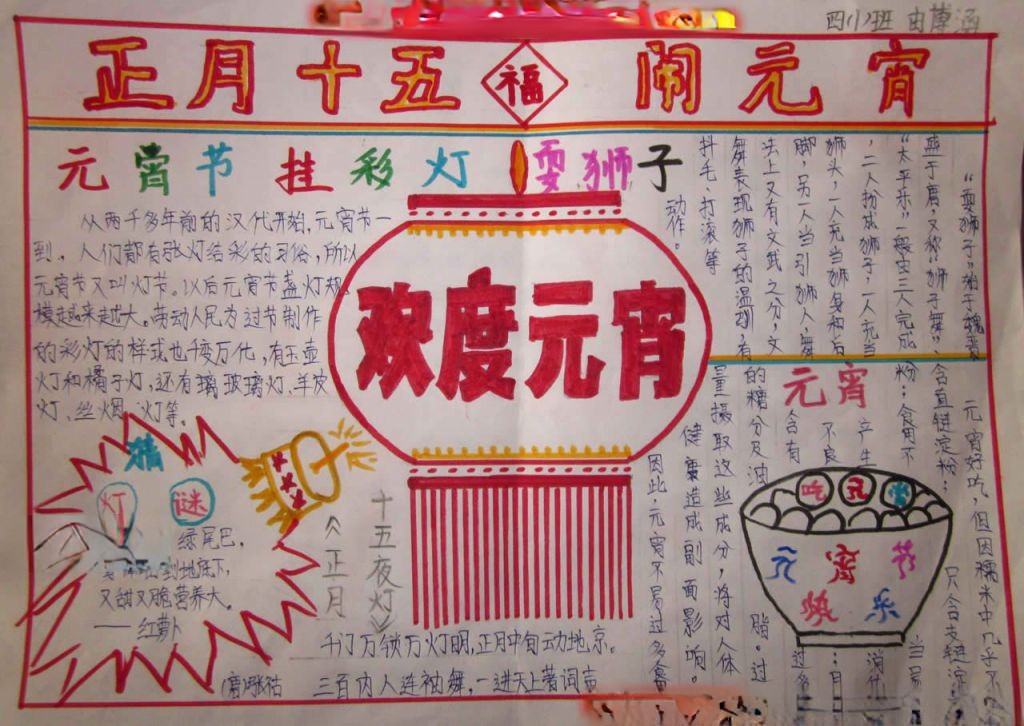 四(1)班
正月十五 福 闹元宵
元宵节 挂彩灯 耍狮子
从两千多年前的汉代开始,元宵节一
到,人们都有张灯给彩的习俗,所以
元宵节又叫灯节。以后元宵节盏灯规
模越来越大。劳动人民为过节制作
的彩灯的样式也千变万化,有玉壶
灯和橘子灯,还有璃玻璃灯、羊皮
灯、丝烟 灯等。
欢度元宵
猜
灯 谜
绿尾巴,
到地底下,
又甜又脆营养大。
——红萝卜
《正月
十五夜灯》
千门万锁万灯明,正月中旬动地京。
三百内人连袖舞,一进天上著词声
“耍狮子,
盛于唐,又称“狮子舞”、
“太平乐”一般由三人完成
,二人扮成狮子,一人充当
狮头,一人充当狮身和后
脚,另一人当引狮人,舞
法上又有文武之分,文
舞表现狮子的温驯,有
抖毛、打滚等
动作。
元宵
元宵好吃,但因糯米中几乎不
含直链淀粉;只含支链淀
粉;食用不当易
产生消化
不良
含有过多
的糖分及油脂。过
量摄取这些成分,将对人体
健康造成副面影响。
因此元宵不易过多食
吃元宵
元宵节
快乐